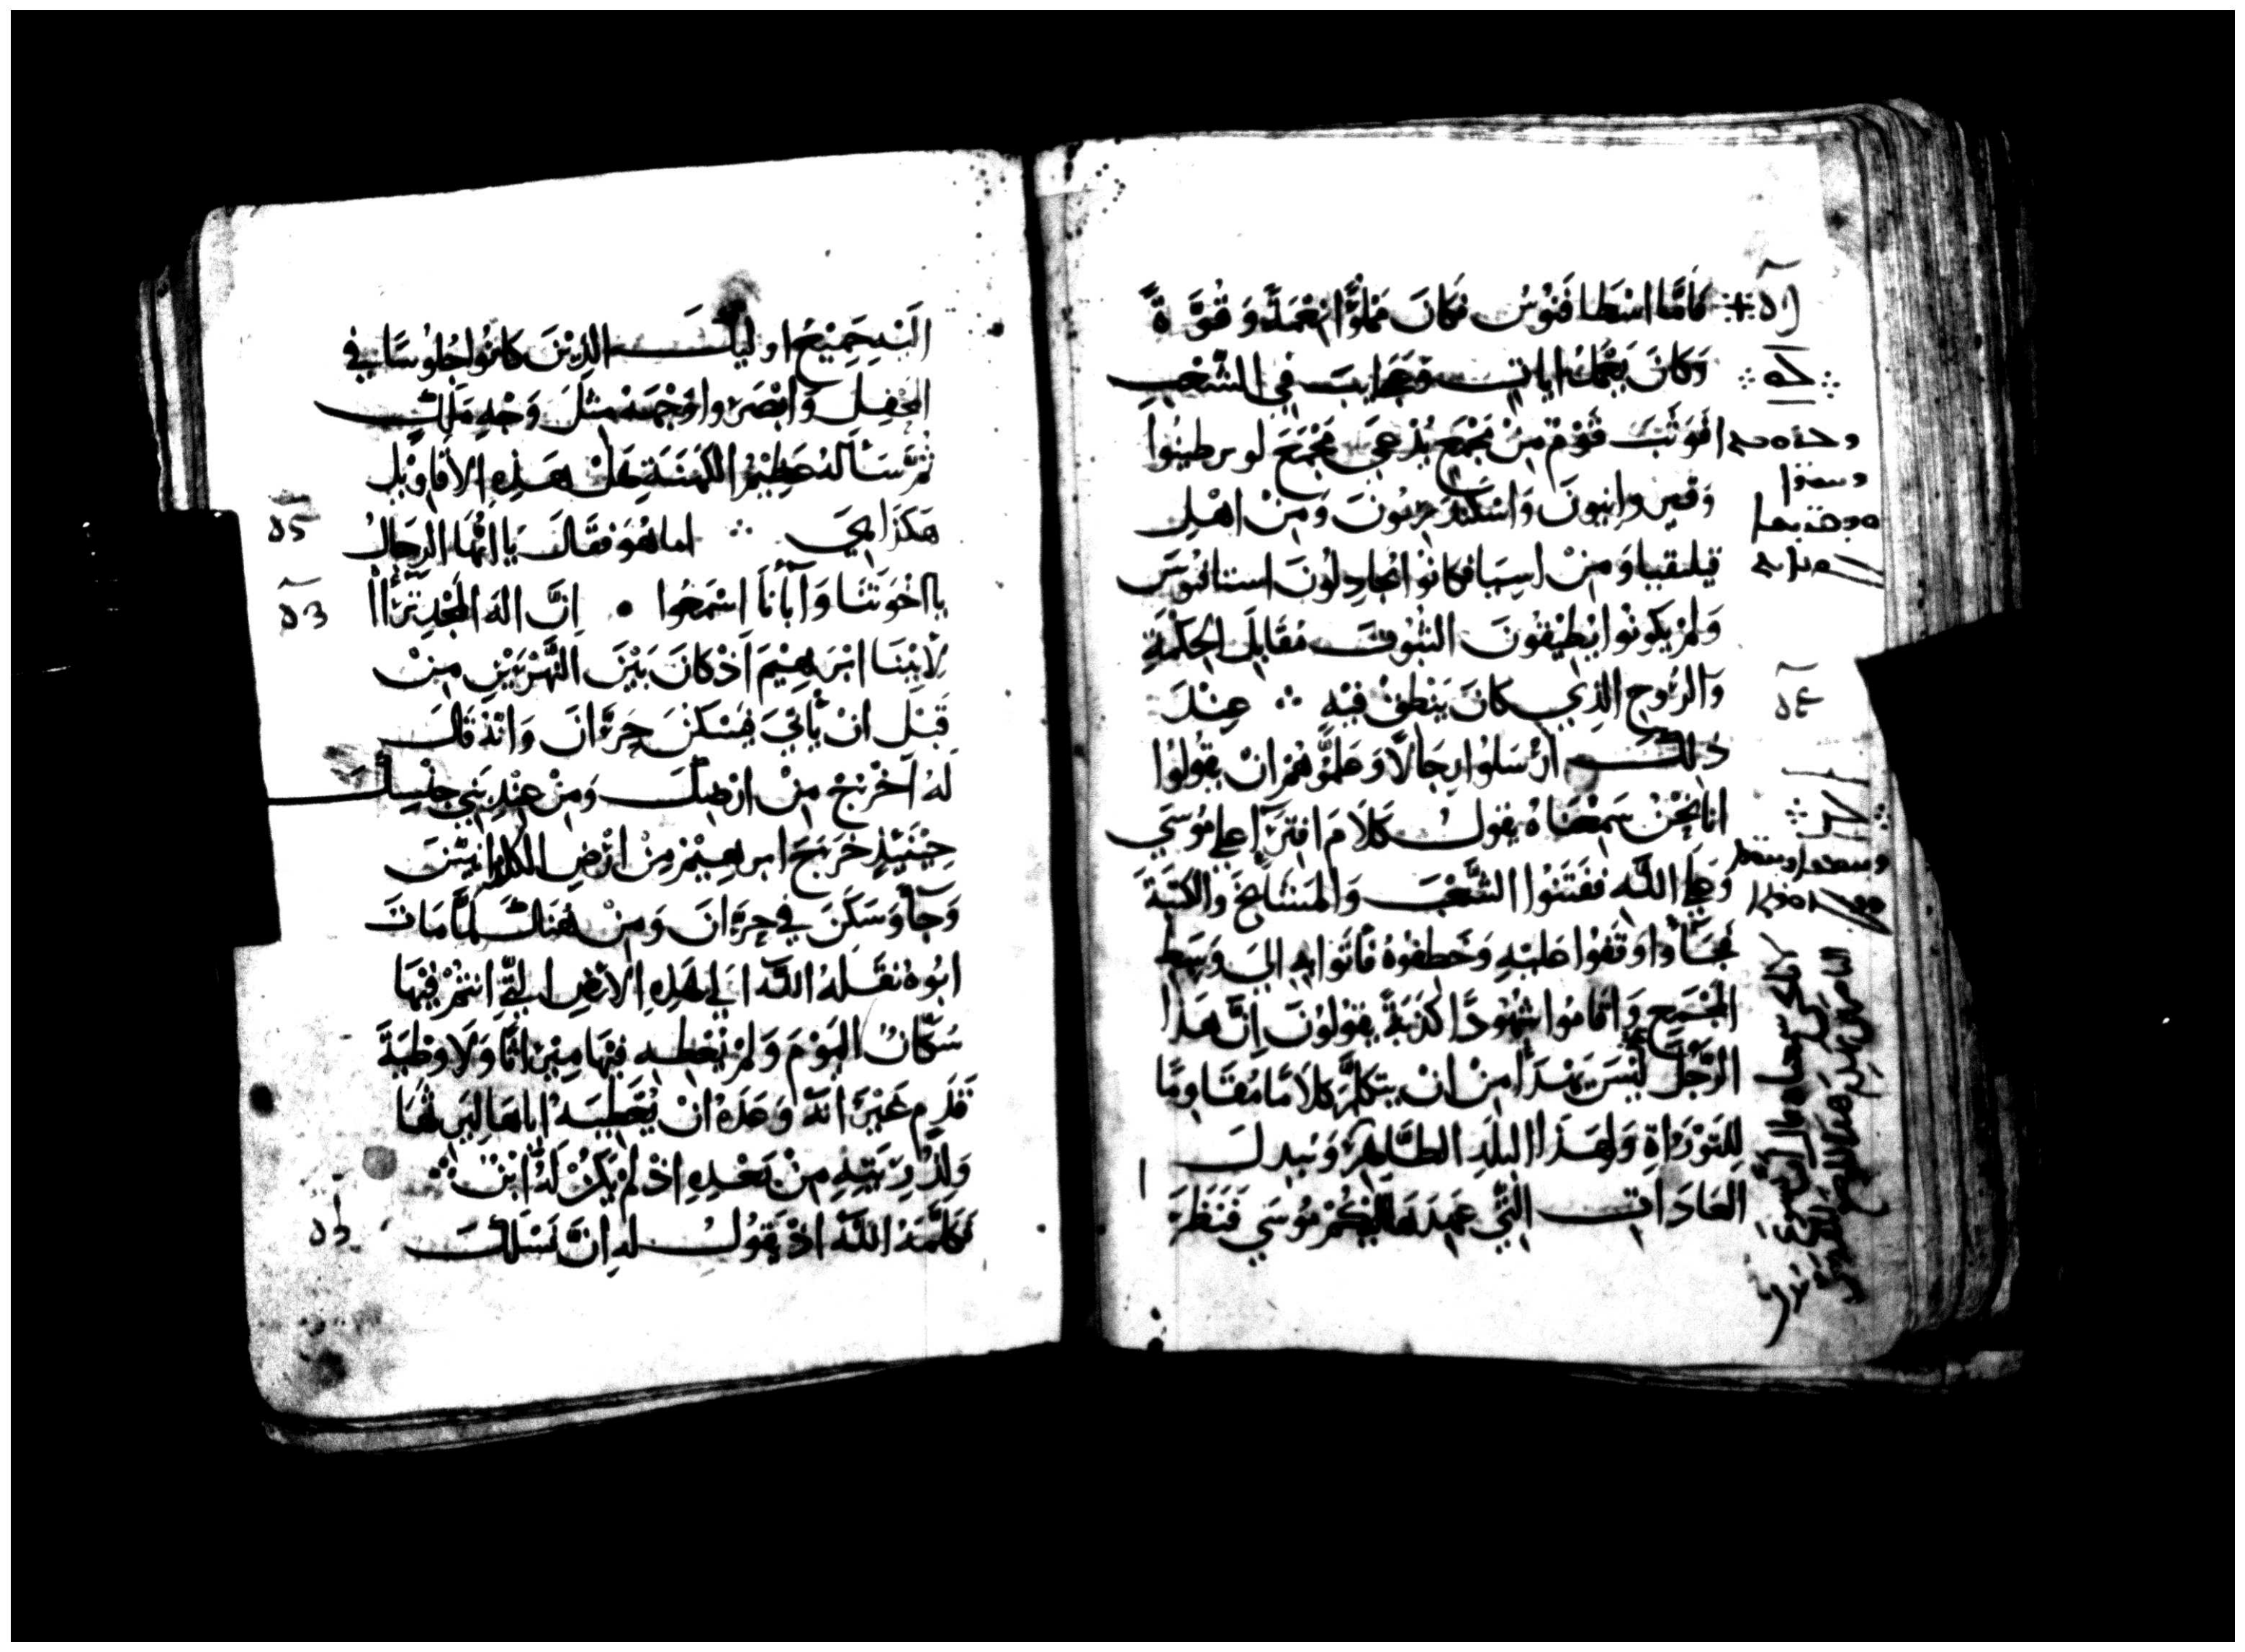 فَامَّا اسْطَافَنُوسُ فَكَانَ مَمْلُوًّا نِعْمَةً وَقُوَّةً
وَكَانَ يَعْمَلُ ايات وَعَجَايبَ فِي الشَّعْبِ
فَوَثَبَ قَوْمٌ مِنْ مَجْمَعٍ يُدْعَى مَجْمَعَ لوبرطينوا
وَقرينوانيون وَاسْكَنْدَرِيُّونَ وَمِنْ اهْلِ
قيلقيا وَمِنْ اسِيَا فكانوا يُجَادِلُونَ استافنوس
وَلَمْ يَكُونُوا يُطِيْقُونَ الثُبُوتَ مُقَابِلَ الحِكْمَةِ
وَالرُّوحِ الذِي كَانَ يَنْطِقُ فِيْهِ ܀ عِنْدَ
ذلِكَ ارْسَلُوا رِجَالًا وَعَلَّمُوْهُمْ انْ يقُولُوا
انا نَحْنُ سَمِعْنَاهُ يَقُولُ كَلَامَ افتِرَآ علي مُوسَي
وَعَلَي اللّه فَفَتَنُوا الشَّعْبَ وَالمَشَايخَ وَالكَتَبَةَ
فَجَآُوا وَقَفُوا عَلَيْهِ وَخَطِفُوهُ فَاتَوا بِهِ الي وَسَطِ
المَجْمَعِ وَاقَامُوا شُهُودًا كَذَبَةً يَقُولُونَ اِنَّ هَذَا
الرَّجُلَ لَيْسَ يَهْدَأ مِنْ انْ يتكلَّمَ كَلَامًا مُقَاوِمًا
لِلتَوْرَاةِ وَلِهَذَا البلَدِ الطَّاهِرِ وَيُبدلَ
العَادَاتِ التِّي عَهِدَهَا اليْكُمْ مُوسَي فَنَظَرَ
الَيْهِ جَمِيْعُ اوليكَ الذِيْنَ كَانُوا جُلُوسًا فِي
المحْفِلِ وَابْصَرُوا وَجْهَهُ مثلَ وَجْهِ مَلَكٍ
ثُمَّ سَأَلَهُ عَظِيْمُ الكَهَنَةِ هَلْ هَذِهِ الأقَاوِيْلِ
هَكَذَا هِيَ ܀ اما هُوَ فقَالَ يَا ايُّهَا الرِجَالُ
يا اخْوَتَنَا وَآبَآنَا اسْمَعُوا • اِنَّ الَهَ المَجْدِ تَرَآأ
لأَبْيْنَا ابْرَهِيْمَ اذْ كَانَ بَيْنَ النَّهْرَيْنِ مِنْ
قَبْلِ انْ يَأتِيَ فيَسْكُنَ حَرَّانَ وَانّهُ قَالَ
لَهُ اخْرُجْ مِنْ ارْضِكَ وَمِنْ عِنْدِ بَنِي جِنْسِكَ
حِيْنَيْذٍ خَرَجَ ابرهِيْمُ مِنْ ارْضِ الكلدانِيِّيْنَ
وَجَآ وَسَكَنَ فِي حَرَّانَ وَمِنْ هُنَاكَ لَمَّا مَاتَ
ابُوهُ نَقَلَهُ اللّه الَي هَذِهِ الارْضِ التِّي انتُمْ فِيْهَا
سُكّانٌ اليَوْمَ وَلَمْ يُعْطِهِ فِيْهَا مِيْرَاثًا وَلَا وَطْيَةَ
قَدَمٍ غَيْرَ انّهُ وَعَدَهُ انْ يُعْطِيَهُ اياهَا ليَرِثَهَا
وَلِذُرِّيَتِهِ مِنْ بَعْدِهِ اذْ لَمْ يَكُنْ لَهُ ابْنٌ ܀
فكَلَّمَهُ اللّه اذْ يَقُولُ لهِ انَّ نَسْلَكَ